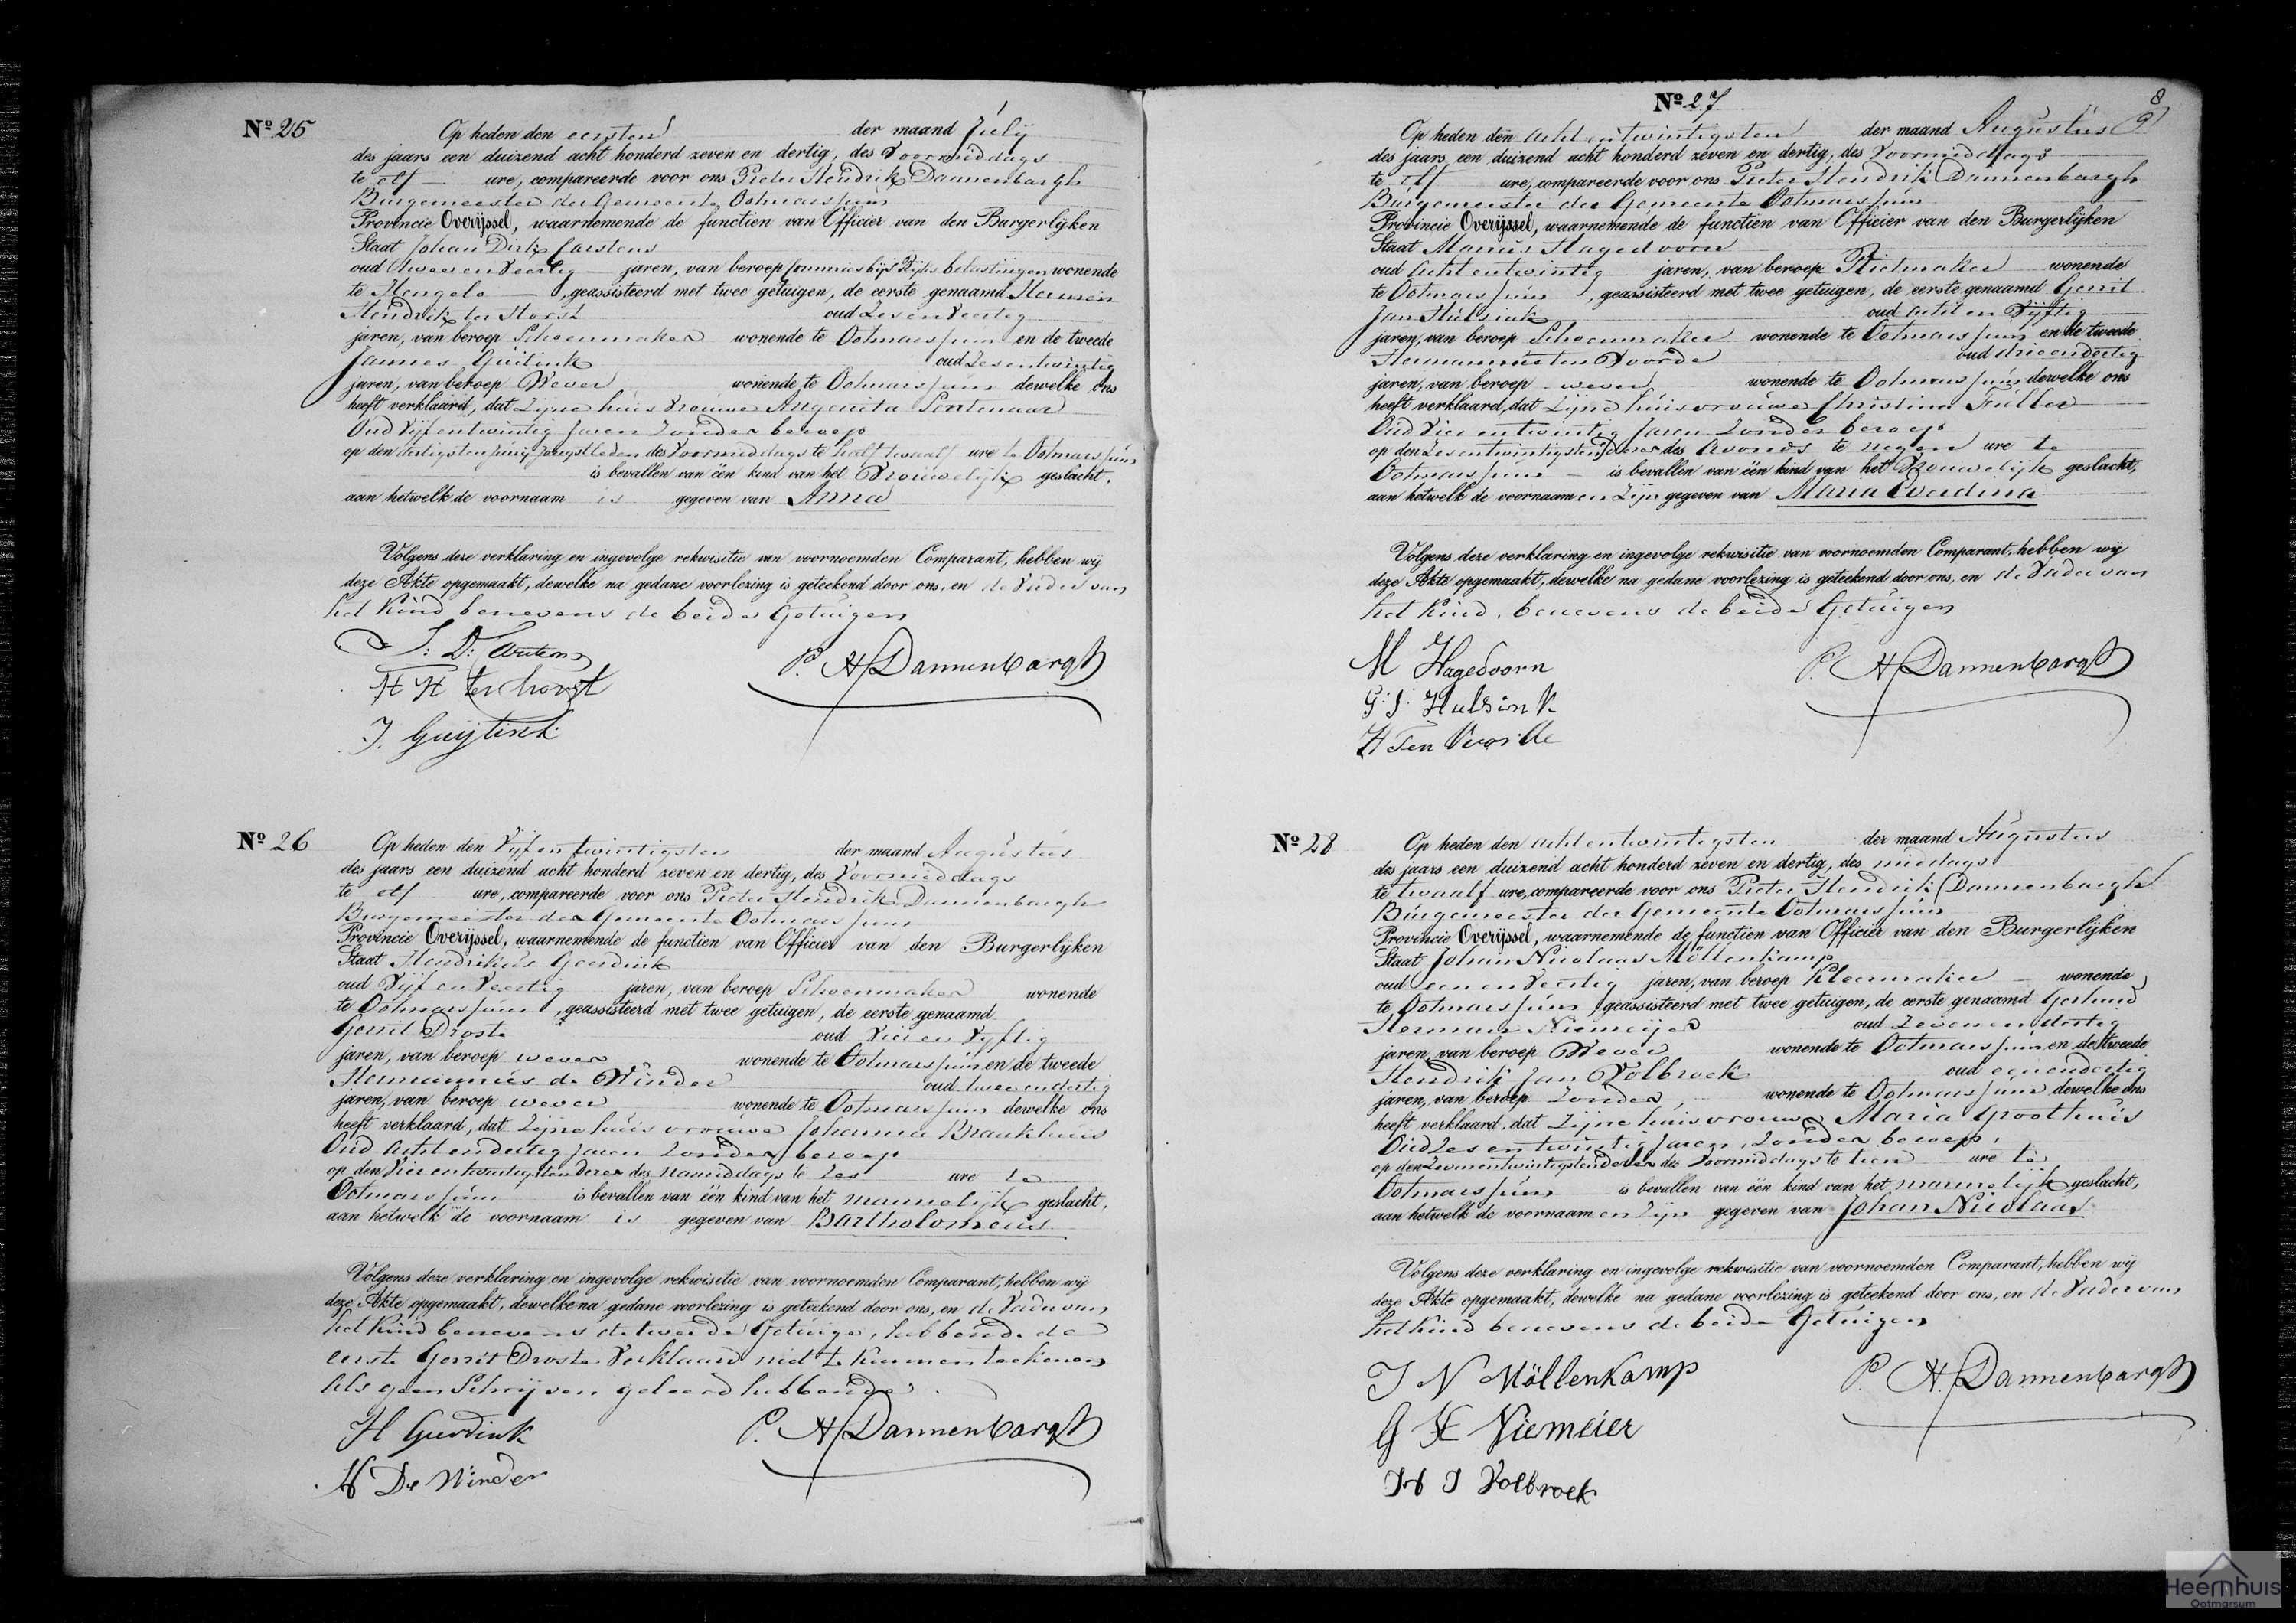 Nº 25
Op heden den eersten der maand Julij
des jaars een duizend acht honderd zeven en dertig, des Voormiddags
te elf ure, compareerde voor ons Pieter Hendrik Dannenbargh
Burgemeester der Gemeente Ootmarssum
Provincie Overijssel, waarnemende de functien van Officier van den Burgerlijken
Staat Johan Dirk Carstens
oud twee en Veertig jaren, van beroep Commies bij's Rijks belastingen wonende
te Hengelo, geassisteerd met twee getuigen, de eerste genaamd Hermen
Hendrik ter Horst oud Zes en Veertig
jaren, van beroep Schoenmaker wonende te Ootmarssum en de tweede
Jannes Guitink oud Zesentwintig
jaren, van beroep Wever wonende te Ootmarssum dewelke ons
heeft verklaard, dat Zijne huisvrouwe Angenita Sentenaar
Oud Vijfentwintig Jaren Zonder beroep
op den dertigsten Junij Jongstleden des Voormiddags te half twaalf ure te Ootmarssum
is bevallen van één kind van het Vrouwelijk geslacht,
aan hetwelk de voornaam is gegeven van Anna
Volgens deze verklaring en ingevolge rekwisitie van voornoemden Comparant, hebben wij
deze Akte opgemaakt, dewelke na gedane voorlezing is geteekend door ons, en de Vader van
het Kind benevens de beide Getuigen
J. D. Carstens
H H ter horst
P. H Dannenbargh
J. Guytink
Nº 26
Op heden den Vijf en twintigsten der maand Augustus
des jaars een duizend acht honderd zeven en dertig, des Voormiddags
te elf ure, compareerde voor ons Pieter Hendrik Dannenbargh
Burgemeester der Gemeente Ootmarssum
Provincie Overijssel, waarnemende de functien van Officier van den Burgerlijken
Staat Hendrikus Geerdink
oud Vijf en Veertig jaren, van beroep Schoenmaker wonende
te Ootmarssum, geassisteerd met twee getuigen, de eerste genaamd
Gerrit Droste oud Vier en Vyftig
jaren, van beroep wever wonende te Ootmarssum en de tweede
Hermannus de Winder oud twee en dertig
jaren, van beroep wever wonende te Ootmarssum dewelke ons
heeft verklaard, dat Zijne huisvrouwe Johanna Braakhuis
Oud Acht en dertig Jaren Zonder beroep
op den Vier en twintigsten dezer des namiddags te Zes ure te
Ootmarssum is bevallen van één kind van het mannelijk geslacht,
aan hetwelk de voornaam is gegeven van Bartholomeus
Volgens deze verklaring en ingevolge rekwisitie van voornoemden Comparant, hebben wij
deze Akte opgemaakt, dewelke na gedane voorlezing is geteekend door ons, en de Vader van
het Kind benevens de tweede Getuige, hebbende de
eerste Gerrit Droste Verklaard niet te kunnen teekenen
Als geen Schrijven geleerd hebbende
H Geerdink
P. H Dannenbargh
H De Winder
Nº 27
8
9
Op heden den acht en twintigsten der maand Augustus
des jaars een duizend acht honderd zeven en dertig, des Voormiddags
te elf ure, compareerde voor ons Pieter Hendrik Dannenbargh
Burgemeester der Gemeente Ootmarssum
Provincie Overijssel, waarnemende de functien van Officier van den Burgerlijken
Staat Manus Hagedoorn
oud acht en twintig jaren, van beroep Rietmaker wonende
te Ootmarssum, geassisteerd met twee getuigen, de eerste genaamd Gerrit
Jan Hulsink oud acht en Vijftig
jaren, van beroep Schoenmaker wonende te Ootmarssum en de tweede
Hermannus ten Voorde oud drie en dertig
jaren, van beroep wever wonende te Ootmarssum dewelke ons
heeft verklaard, dat Zijne huisvrouwe Christina Fuller
Oud Vier en twintig Jaren Zonder beroep
op den Zesentwintigsten dezer des Avonds te negen ure te
Ootmarssum is bevallen van één kind van het Vrouwelijk geslacht,
aan hetwelk de voornaamen Zijn gegeven van Maria Everdina
Volgens deze verklaring en ingevolge rekwisitie van voornoemden Comparant, hebben wij
deze Akte opgemaakt, dewelke na gedane voorlezing is geteekend door ons, en de Vader van
het Kind, benevens de beide Getuigen
M Hagedoorn
P. H Dannenbargh
G. J. Hulsink
H Ten Voorde
Nº 28
Op heden den acht en twintigsten der maand Augustus
des jaars een duizend acht honderd zeven en dertig, des middags
te twaalf ure, compareerde voor ons Pieter Hendrik Dannenbargh
Burgemeester der Gemeente Ootmarssum
Provincie Overijssel, waarnemende de functien van Officier van den Burgerlijken
Staat Johan Nicolaas Möllenkamp
oud een en Veertig jaren, van beroep Kleermaker wonende
te Ootmarssum, geassisteerd met twee getuigen, de eerste genaamd Gerhard
Herman Niemeijer oud Zeven en dertig
jaren, van beroep Wever wonende te Ootmarssum en de tweede
Hendrik Jan Volbroek oud een en dertig
jaren, van beroep Zonder, wonende te Ootmarssum dewelke ons
heeft verklaard, dat Zijne huisvrouwe Maria Groothuis
Oud Zesentwintig Jaren, Zonder beroep,
op den Zevenentwintigsten dezer des Voormiddags te tien ure te
Ootmarssum is bevallen van één kind van het mannelijk geslacht,
aan hetwelk de voornaamen Zijn gegeven van Johan Nicolaas
Volgens deze verklaring en ingevolge rekwisitie van voornoemden Comparant, hebben wij
deze Akte opgemaakt, dewelke na gedane voorlezing is geteekend door ons, en de Vader van
het Kind benevens de beide Getuigen
J N Möllenkamp
P. H. Dannenbargh
G H Niemeier
H J Volbroek
Heemhuis
Ootmarsum